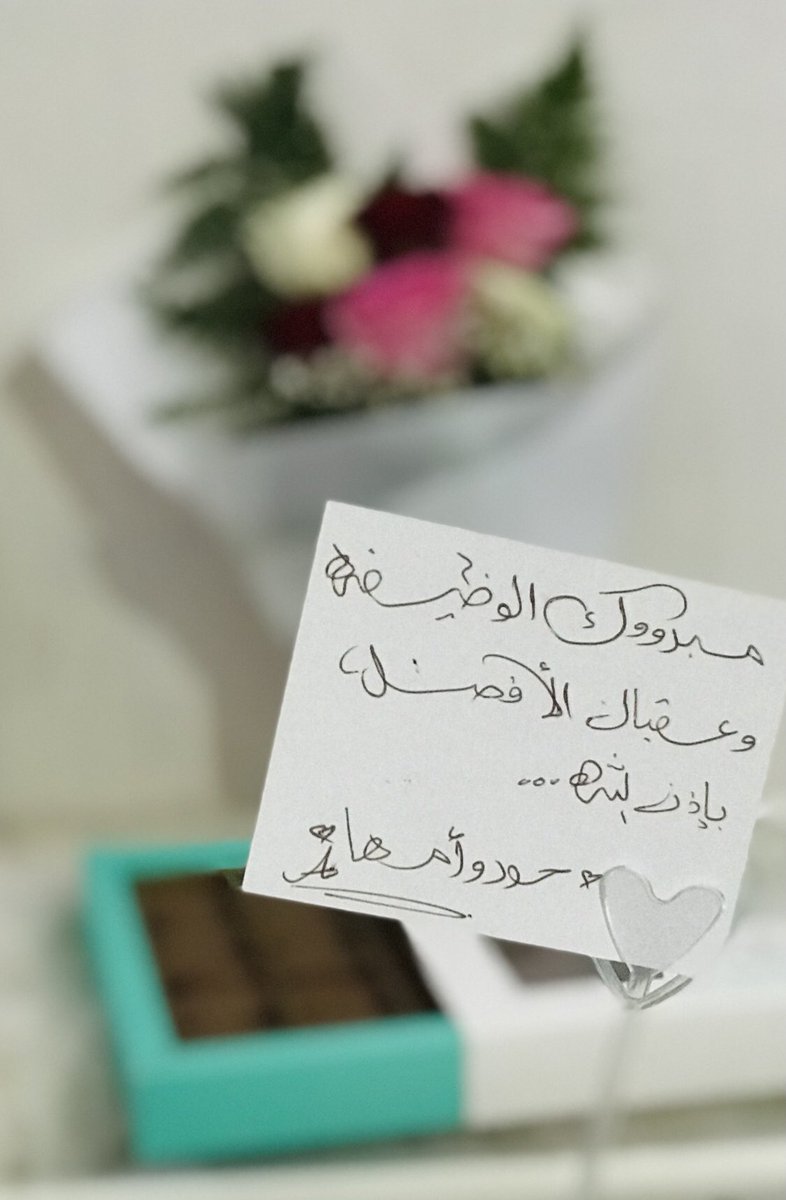 مبرووك الوظيفة
وعقبال الأفضل،
بإذن الله...
جود وأمها